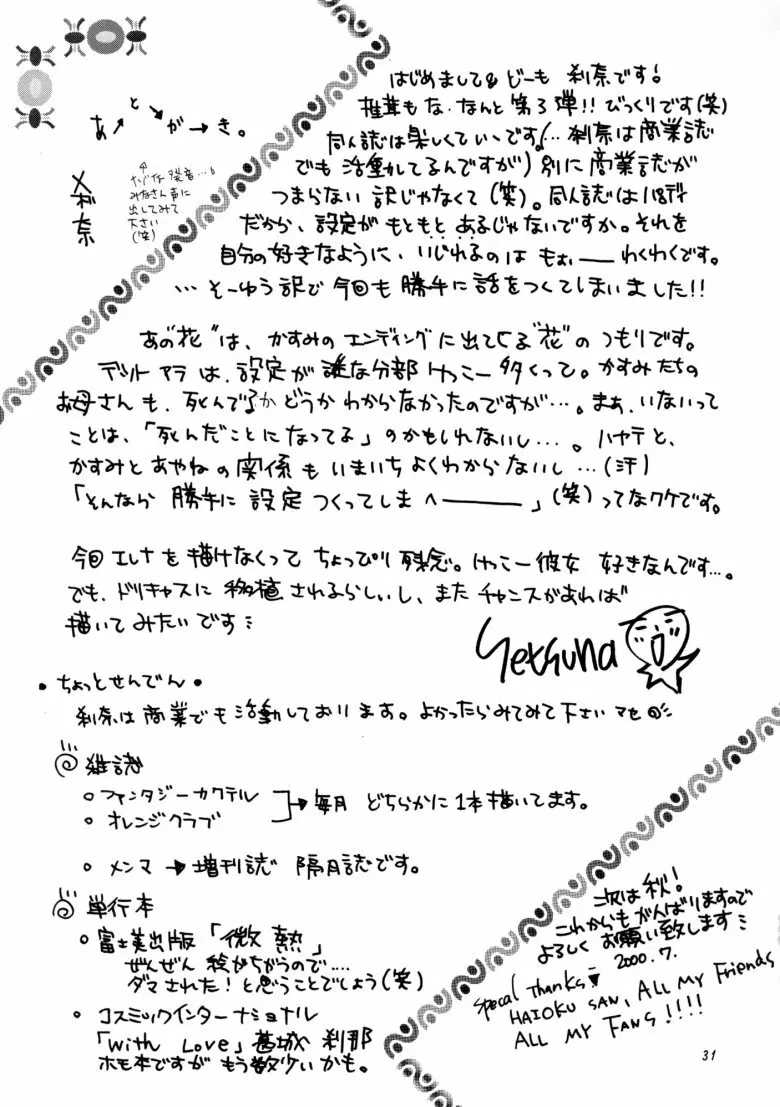 あとがき。
刹奈
ヤバイ子発音…。
みなさん声に
出してみて
下さい
(笑)
はじめまして&どーも 刹奈です!
椎茸もな、なんと第3弾!!びっくりです(笑)
同人誌は楽しくていいです!(…刹奈は商業誌
でも活動してるんですが)別に商業誌が
つまらない訳じゃなくて(笑)。同人誌はパロディ
だから、設定がもともとあるじゃないですか。それを
自分の好きなように、いじれるのはもぉーわくわくです。
…そーゆう訳で今回も勝手に話をつくてしまいました!!
あの"花"は、かすみのエンディングに出てくる"花"のつもりです。
デットアラは、設定が謎な分部けっこー多くって。かすみたちの
お母さんも、死んでるかどうかわからなかったのですが…。まぁ、いないって
ことは、「死んだことになってる」のかもしれないし…。ハヤテと、
かすみとあやねの関係もいまいちよくわからないし…(汗)
「そんなら勝手に設定つくってしまへー」(笑)ってなワケです。
今回エレナを描けなくってちょっぴり残念。けっこー彼女好きなんです…。
でも、ドリキャスに移植されるらしいし、またチャンスがあれば
描いてみたいです
Setsuna
・ちょっとせんでん・
刹奈は商業でも活動しております。よかったらみてみて下さいませ
雑誌
○ファンタジーカクテル
○オレンジクラブ
→毎月どちらかに1本描いてます。
○メンマ→増刊誌 隔月誌です。
単行本
○富士美出版「微熱」
ぜんぜん絵がちがうので…
ダマされた!と思うことでしょう(笑)
○コスミックインターナショナル
「With Love」葛城 刹那
ホモ本ですがもう数少いかも。
次は秋!
これからもがんばりますので
よろしくお願い致します
2000.7.
Specal Thanks
HAIOKU SAN, ALL MY Friends
ALL MY FANS!!!!
31